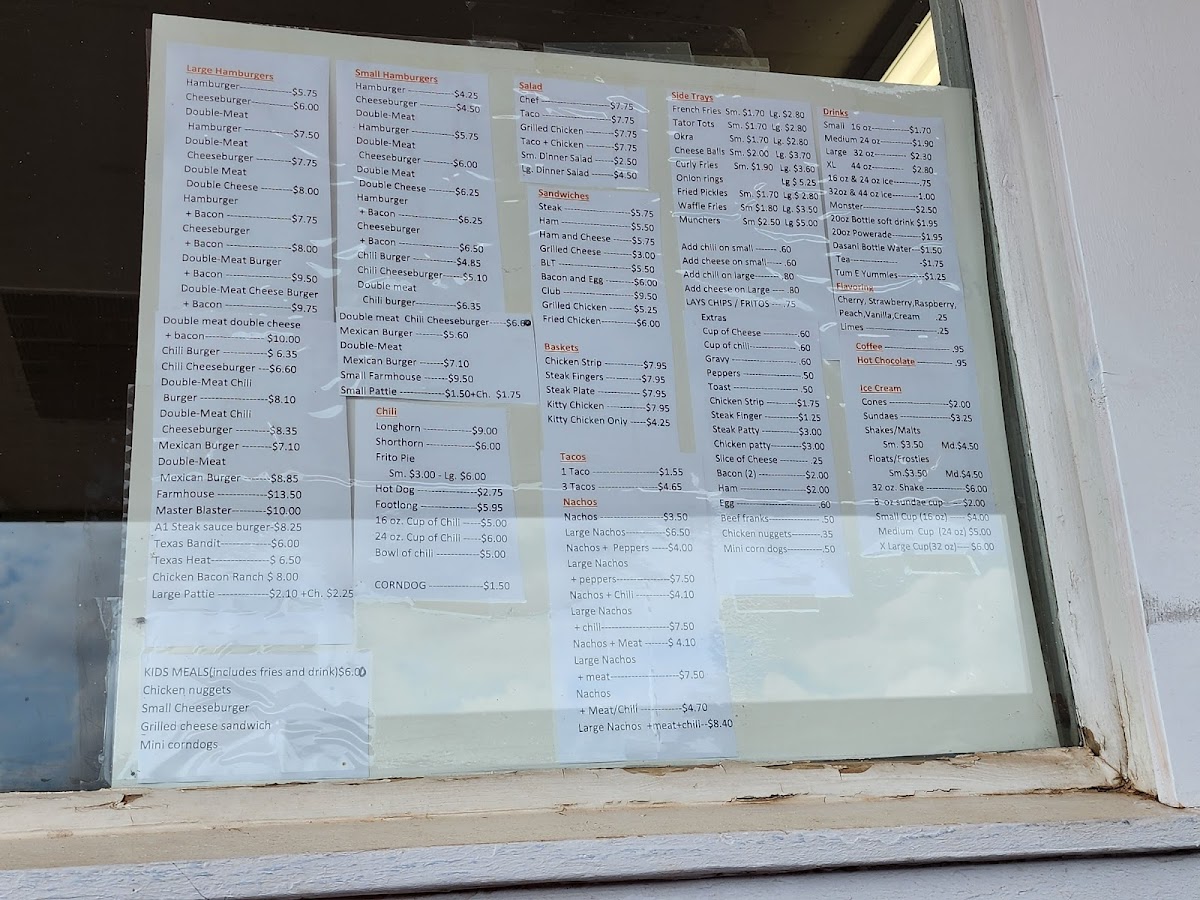 Large Hamburgers
Hamburger---------------$5.75
Cheeseburger------------$6.00
Double-Meat
Hamburger ---------------$7.50
Double-Meat
Cheeseburger------------$7.75
Double Meat
Double Cheese ----------$8.00
Hamburger
+ Bacon ------------------$7.75
Cheeseburger
+ Bacon ------------------$8.00
Double-Meat Burger
+ Bacon ------------------$9.50
Double-Meat Cheese Burger
+ Bacon ------------------$9.75
Double meat double cheese
+ bacon----------------$10.00
Chili Burger -----------$ 6.35
Chili Cheeseburger ---$6.60
Double-Meat Chili
Burger -----------------$8.10
Double-Meat Chili
Cheeseburger---------$8.35
Mexican Burger -------$7.10
Double-Meat
Mexican Burger -------$8.85
Farmhouse ------------$13.50
Master Blaster---------$10.00
A1 Steak sauce burger-$8.25
Texas Bandit-----------$6.00
Texas Heat-------------$ 6.50
Chicken Bacon Ranch $ 8.00
Large Pattie -------------$2.10 +Ch. $2.25
KIDS MEALS(includes fries and drink)$6.00
Chicken nuggets
Small Cheeseburger
Grilled cheese sandwich
Mini corndogs
Small Hamburgers
Hamburger --------------$4.25
Cheeseburger -----------$4.50
Double-Meat
Hamburger --------------$5.75
Double-Meat
Cheeseburger -----------$6.00
Double Meat
Double Cheese ---------$6.25
Hamburger
+ Bacon -----------------$6.25
Cheeseburger
+ Bacon -----------------$6.50
Chili Burger ------------$4.85
Chili Cheeseburger-----$5.10
Double meat
Chili burger-------------$6.35
Double meat Chili Cheeseburger-----$6.60
Mexican Burger -------$5.60
Double-Meat
Mexican Burger -------$7.10
Small Farmhouse ------$9.50
Small Pattie -----------$1.50+Ch. $1.75
Chili
Longhorn -------------$9.00
Shorthorn -------------$6.00
Frito Pie
Sm. $3.00 - Lg. $6.00
Hot Dog ---------------$2.75
Footlong --------------$5.95
16 oz. Cup of Chill -----$5.00
24 oz. Cup of Chill -----$6.00
Bowl of chili -----------$5.00
CORNDOG --------------$1.50
Salad
Chef ------------------$7.75
Taco ------------------$7.75
Grilled Chicken -------$7.75
Taco + Chicken -------$7.75
Sm. Dinner Salad -----$2.50
Lg. Dinner Salad -----$4.50
Sandwiches
Steak ---------------------$5.75
Ham ----------------------$5.50
Ham and Cheese -------$5.75
Grilled Cheese ----------$3.00
BLT ----------------------$5.50
Bacon and Egg ---------$6.00
Club ---------------------$9.50
Grilled Chicken ---------$5.25
Fried Chicken-----------$6.00
Baskets
Chicken Strip ----------$7.95
Steak Fingers----------$7.95
Steak Plate ------------$7.95
Kitty Chicken ----------$7.95
Kitty Chicken Only -----$4.25
Tacos
1 Taco -----------------$1.55
3 Tacos ----------------$4.65
Nachos
Nachos ----------------$3.50
Large Nachos----------$6.50
Nachos + Peppers ----$4.00
Large Nachos
+ peppers--------------$7.50
Nachos + Chili ---------$4.10
Large Nachos
+ chili------------------$7.50
Nachos + Meat -------$ 4.10
Large Nachos
+ meat-----------------$7.50
Nachos
+ Meat/Chili -----------$4.70
Large Nachos +meat+chili--$8.40
Side Trays
French Fries Sm. $1.70 Lg. $2.80
Tator Tots Sm. $1.70 Lg. $2.80
Okra Sm. $1.70 Lg. $2.80
Cheese Balls Sm. $2.00 Lg. $3.70
Curly Fries Sm. $1.90 Lg. $3.60
Onion rings Lg $ 5.25
Fried Pickles Sm. $1.70 Lg.$ 2.80
Waffle Fries Sm $1.80 Lg. $3.50
Munchers Sm $2.50 Lg $5.00
Add chili on small ------- .60
Add cheese on small----- .60
Add chili on large ------- .80
Add cheese on Large ---- .80
LAYS CHIPS / FRITOS -- .75
Extras
Cup of Cheese ---------- .60
Cup of chili-------------- .60
Gravy -------------------- .60
Peppers ------------------ .50
Toast --------------------- .50
Chicken Strip -----------$1.75
Steak Finger-------------$1.25
Steak Patty--------------$3.00
Chicken patty-----------$3.00
Slice of Cheese -------- .25
Bacon (2) ---------------$2.00
Ham --------------------$2.00
Egg ----------------------.60
Beef franks--------------.50
Chicken nuggets--------.35
Mini corn dogs----------.50
Drinks
Small 16 oz------------$1.70
Medium 24 oz----------$1.90
Large 32 oz-----------$2.30
XL 44 oz------------$2.80
16 oz & 24 oz ice--------.75
32oz & 44 oz ice--------1.00
Monster----------------$2.50
20oz Bottle soft drink $1.95
20oz Powerade--------$1.95
Dasani Bottle Water---$1.50
Tea------------------- -$1.75
Tum E Yummies-------$1.25
Flavoring
Cherry, Strawberry,Raspberry,
Peach,Vanilla,Cream .25
Limes ------------------.25
Coffee ------------------.95
Hot Chocolate ----------.95
Ice Cream
Cones ----------------$2.00
Sundaes --------------$3.25
Shakes/Malts
Sm. $3.50 Md.$4.50
Floats/Frosties
Sm.$3.50 Md.$4.50
32 oz. Shake ----------$6.00
8 oz sundae cup ----$2.00
Small Cup (16 oz)-----$4.00
Medium Cup (24 oz) $5.00
X Large Cup(32 oz)---- $6.00